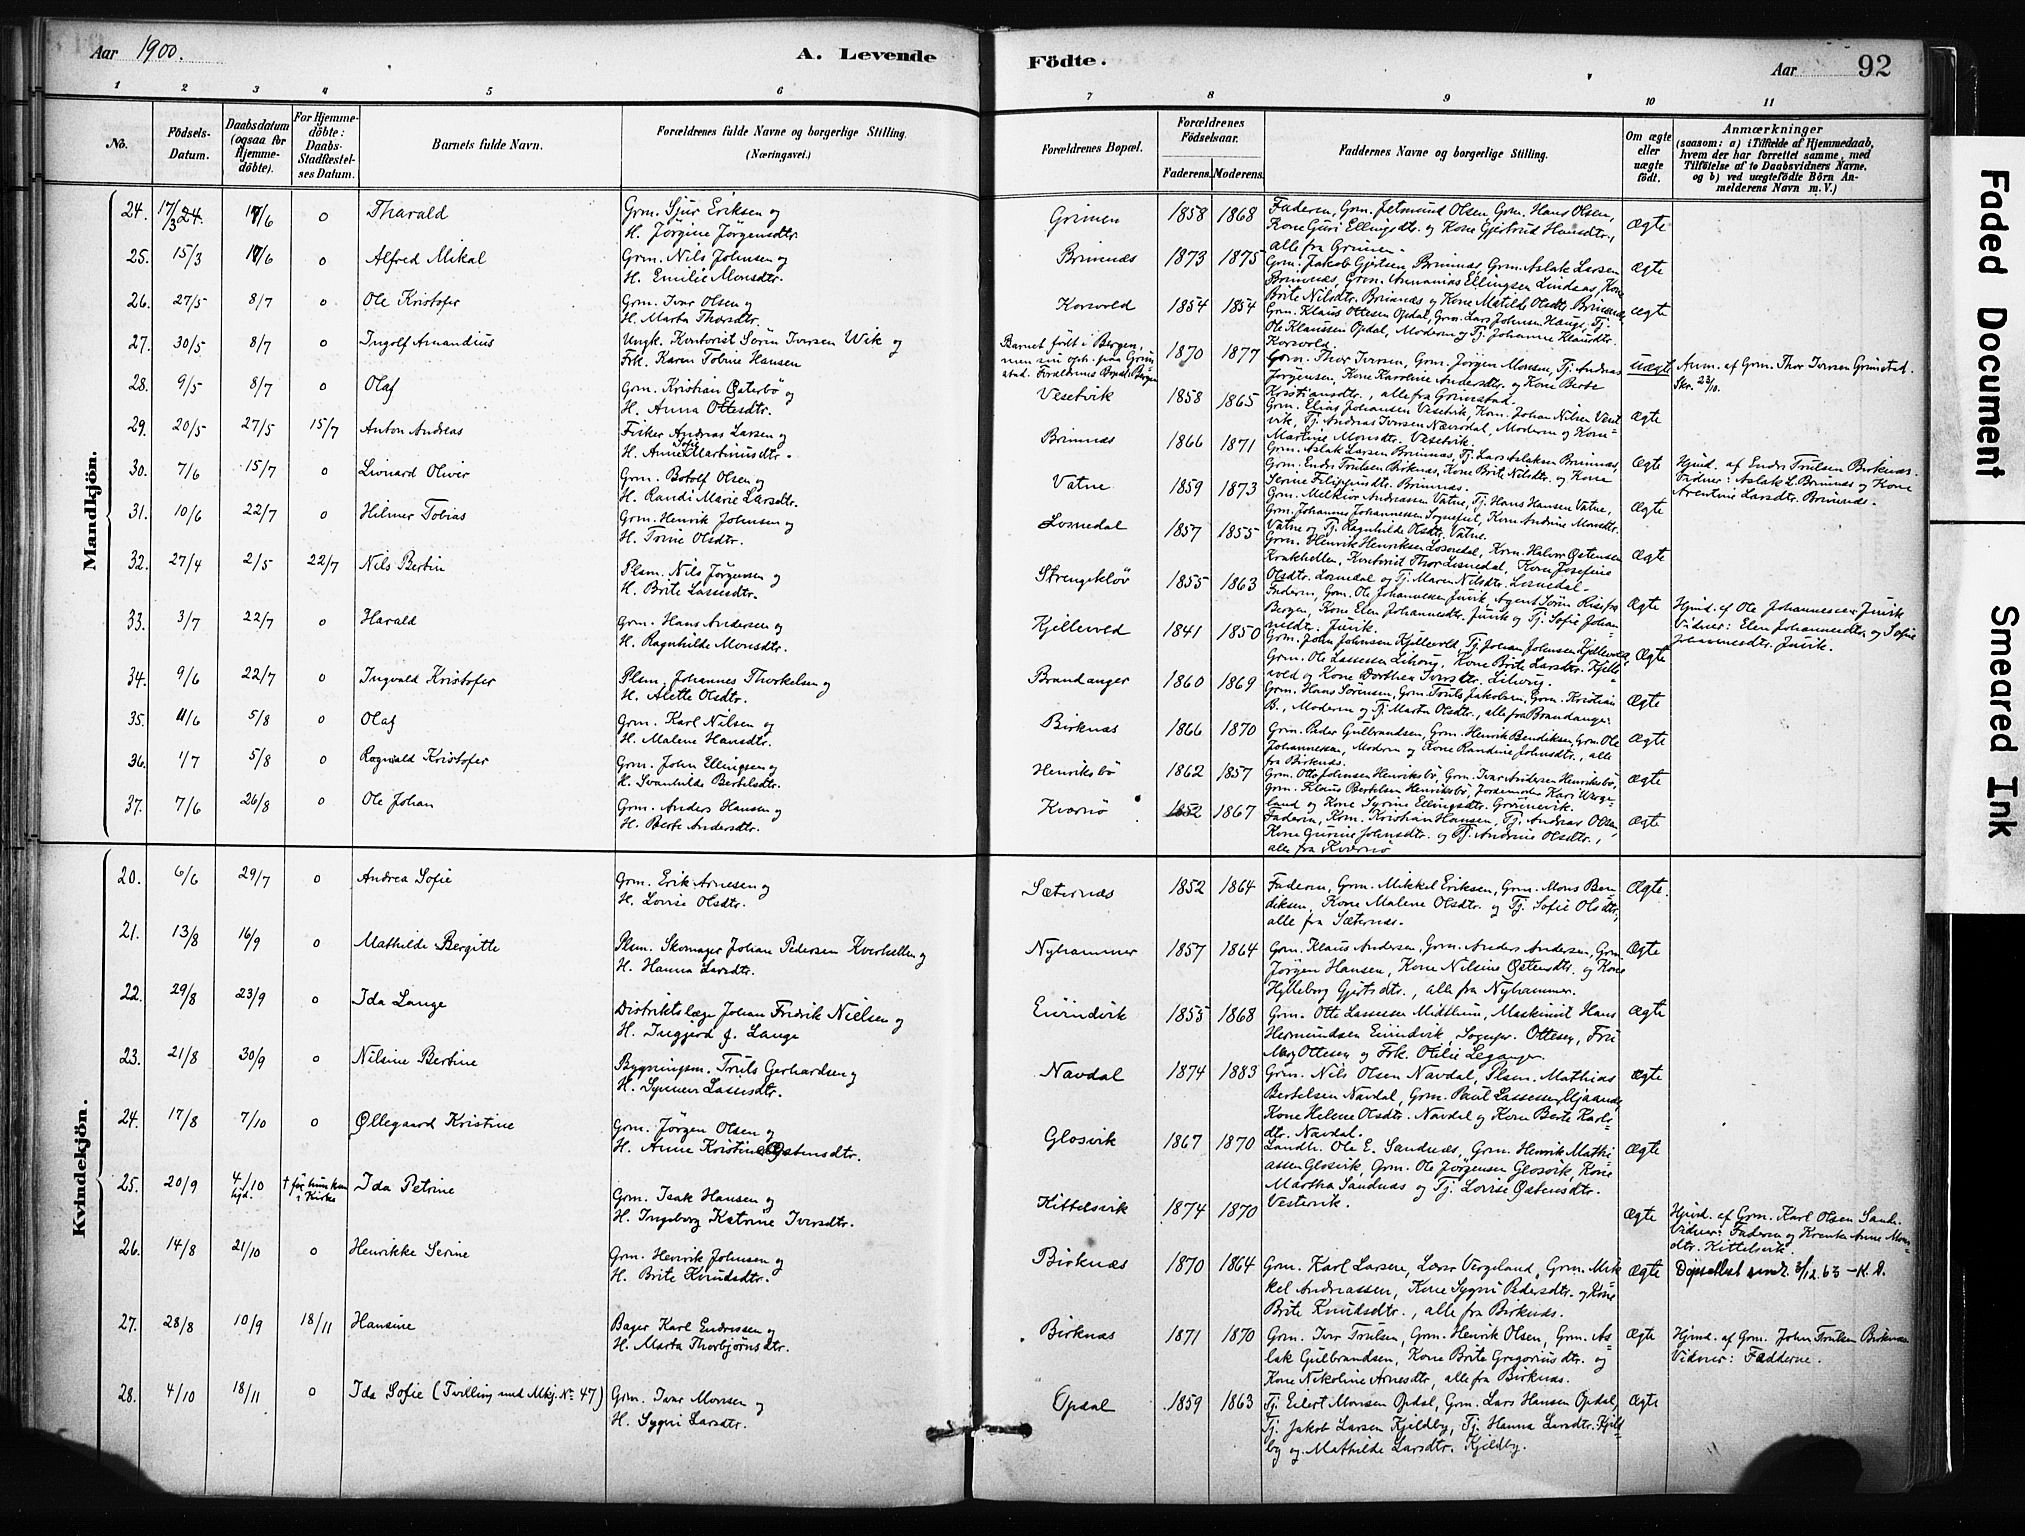 Aar 1900.
A. Levende
Födte.
Aar
92
1 2 3 4 5 6 7 8 9 10 11
No.
Födsels-
Datum.
Daabsdatum
(ogsaa for
Hjemme-
döbte).
For Hjemme-
döbte:
Daabs-
Stadfæstel-
ses Datum.
Barnets fulde Navn.
Forældrenes fulde Navne og borgerlige Stilling.
(Næringsvei.)
Forældrenes Bopæl.
Forældrenes
Födselsaar.
Faderens. Moderens.
Faddernes Navne og borgerlige Stilling.
Om ægte
eller
uægte
födt.
Anmærkninger
(saasom: a) i Tilfælde af Hjemmedaab,
hvem der har forrettet samme, med
Tilföielse af to Daabsvidners Navne,
og b) ved uægtefödte Börn An-
melderens Navn m.V.)
Mandkjön.
24. 17/3 24. 17/6 o Tharald
Grm. Sjur Eriksen og
H. Jørgine Jørgensdtr.
Grimen 1858 1868
Faderen, Grm. Jetmund Olsen, Grm. Hans Olsen,
Kone Guri Ellingsdtr. og Kone Gjertrud Hansdtr.,
alle fra Grimen.
Ægte
25. 15/3 17/6 o Alfred Mikal
Grm. Nils Johnsen og
H. Emilie Monsdtr.
Brimnæs 1873 1875
Grm. Jakob Gjertsen Brimnæs, Grm. Aslak Larsen
Brimnæs, Grm. Annanias Ellingsen Lindeas, Kone
Brite Nilsdtr. Brimnæs og Kone Matilde Olsdtr. Brimnæs
Ægte
26. 27/5 8/7 o Ole Kristofer
Grm. Ivar Olsen og
H. Marta Thorsdtr.
Korsvold 1854 1854
Grm. Klaus Ottesen Opdal, Grm. Lars Johnsen Hauge, Tj.
Ole Klaussen Opdal, Moderen og Tj. Johanne Klausdtr.
Korsvold.
Ægte
27. 30/5 8/7 o Ingolf Amandius
Ungk. Kontorist Sørin Iversen Wik og
Frk. Karen Toline Hansen
Barnet født i Bergen,
1870 1877
Grm. Thor Iversen, Grm. Jørgen Monsen, Tj. Andreas
Jørgensen, Kone Karoline Andersdtr. og Kone Berte
Kristiansdtr., alle fra Grimstad.
uægte
Anm. af Grm. Thor Iversen Grimstad.
28. 9/5 8/7 o Olaf
Grm. Kristian Østerbø og
H. Anna Ottesdtr.
Vesetvik 1858 1865
Grm. Elias Johansen Vesetvik, Korn. Johan Nilsen Veset
vik, Tj. Andreas Iversen Nævrdal, Moderen og Kone
Martine Monsdtr. Vesetvik.
Ægte
29. 20/5 27/5 15/7 Anton Andreas
Fisker Andreas Larsen og
H. Anne Sofie Martinusdtr.
Brimnæs 1866 1871
Grm. Aslak Larsen Brimnæs, Tj. Lars Aslaksen Brimnæs,
Grm. Endre Trulsen Birknæs, Kone Brite Nilsdtr. og Kone
Serine Filippusdtr. Brimnæs.
Ægte
Hjmd. af Endre Trulsen Birknæs.
Vidner: Aslak L. Brimnæs og Kone
Arentine Larsdtr. Brimnæs.
30. 7/6 15/7 o Leonard Oliver
Grm. Botolf Olsen og
H. Randi Marie Larsdtr.
Vatne 1859 1873
Grm. Melkior Andreassen Vatne, Tj. Hans Hansen Vatne,
Grm. Johannes Johannessen Sognefest, Kone Andrine Monsdtr.
Vatne og Tj. Ragnhilde Olsdtr. Vatne.
Ægte
31. 10/6 22/7 o Hilmer Tobias
Grm. Henrik Johnsen og
H. Torine Olsdtr.
Losnedal 1857 1855
Grm. Henrik Henriksen Losnedal, Korn. Halvor Østensen
Krakhellen, Kontorist Thor Losnedal, Kone Josefine
Olsdtr. Losnedal og Tj. Maren Nilsdtr. Losnedal.
Ægte
32. 27/4 2/5 22/7 Nils Bertin
Plsm. Nils Jørgensen og
H. Brite Lassesdtr.
Strengekløv 1855 1863
Faderen, Grm. Ole Johannessen Juvik, Agent Sørin Riise fra
Bergen, Kone Elen Johannesdtr. Juvik og Tj. Sofie Johan-
nesdtr. Juvik.
Ægte
Hjmd. af Ole Johannessen Juvik
Vidner: Elen Johannesdtr. og Sofie
Johannesdtr. Juvik.
33. 3/7 22/7 o Harald
Grm. Hans Andersen og
H. Ragnhilde Monsdtr.
Kjellevold 1841 1850
Grm. John Johnsen Kjellevold, Tj. Johan Johnsen Kjellevold,
Grm. Ole Lassesen Lihoug, Kone Brite Larsdtr. Kjelle
vold og Kone Dorthea Iversdtr. Lihoug.
Ægte
34. 9/6 22/7 o Ingvald Kristofer
Plsm. Johannes Thorkelsen og
H. Alette Olsdtr.
Brandanger 1860 1869
Grm. Hans Sørensen, Grm. Truls Jakobsen, Grm. Kristian
B., Moderen og Tj. Marta Olsdtr., alle fra Brandanger.
Ægte
35. 11/6 5/8 o Olaf
Grm. Karl Nilsen og
H. Malene Hansdtr.
Birknæs 1866 1870
Grm. Peder Gulbrandsen, Grm. Henrik Bendiksen, Grm. Ole
Johannessen, Moderen og Kone Randine Johnsdtr., alle
fra Birknæs.
Ægte
36. 1/7 5/8 o Ragnvald Kristofer
Grm. John Ellingsen og
H. Svanhilde Bertelsdtr.
Henriksbø 1862 1857
Grm. Otte Johnsen Henriksbø, Grm. Ivar Andersen Henriksbø,
Grm. Klaus Bertelsen Henriksbø, Jordemoder Kari Werge-
land og Kone Syrine Ellingsdtr. Grinnevik.
Ægte
37. 7/6 26/8 o Ole Johan
Grm. Anders Hansen og
H. Berte Andersdtr.
Kvernø 1852 1867
Faderen, Korn. Kristian Hansen, Tj. Andreas Olsen,
Kone Gurine Johnsdtr. og Tj. Andrine Olsdtr.,
alle fra Kvernø
Ægte
Kvindekjön.
20. 6/6 29/7 o Andrea Sofie
Grm. Erik Arnesen og
H. Lovise Olsdtr.
Sæternæs 1852 1864
Faderen, Grm. Mikkel Eriksen, Grm. Mons Ben
diksen, Kone Malene Olsdtr. og Tj. Sofie Olsdtr.,
alle fra Sæternæs.
Ægte.
21. 13/8 16/9 o Mathilde Bergitte
Plsm. Skomager Johan Pedersen Kverhellen og
H. Hanna Larsdtr.
Nyhammer 1857 1864
Grm. Klaus Andersen, Grm. Anders Andersen, Grm.
Jørgen Hansen, Kone Nilsine Østensdtr. og Kone
Hylleborg Gjertsdtr., alle fra Nyhammer.
Ægte
22. 29/8 23/9 o Ida Lange
Distriktslæge Johan Fredrik Nielsen og
H. Inggjerd f. Lange
Eivindvik 1855 1868
Grm. Otte Lassesen Midtbin, Maskinist Hans
Hermundsen Eivindvik, Sognepr. Ottesen, Fru
Mary Ottesen og Frk. Otilie Leganger.
Ægte
23. 21/8 30/9 o Nilsine Bertine
Bygningsm. Truls Gerhardsen og
H. Synneva Lassesdtr.
Navdal 1874 1883
Grm. Nils Olsen Navdal, Plsm. Mathias
Bertelsen Navdal, Grm. Paul Lassesen Mjaanes,
Kone Helene Olsdtr. Navdal og Kone Berte Karls-
dtr. Navdal.
Ægte
24. 17/8 7/10 o Øllegaard Kristine
Grm. Jørgen Olsen og
H. Anne Kristine Østensdtr.
Glosvik 1867 1870
Landh. Ole E. Sandnæs, Grm. Henrik Mathi
assen Glosvik, Grm. Ole Jørgensen Glosvik, Kone
Martha Sandnæs og Tj. Lovise Østensdtr.
Vestervik.
Ægte
25. 20/9 4/10 hjd. † før hun kom i Kirke Ida Petrine
Grm. Isak Hansen og
H. Ingeborg Katrine Iversdtr.
Kittelsvik 1874 1870
Ægte
Hjmd. af Grm. Karl Olsen Sande.
Vidner: Faderen og Kone Anne Mons-
dtr. Kittelsvik.
26. 14/8 21/10 o Henrikke Serine
Grm. Henrik Johnsen og
H. Brite Knudsdtr.
Birknæs 1870 1864
Grm. Karl Larsen, Lærer Vergeland, Grm. Mik
kel Andreassen, Kone Sygni Pedersdtr. og Kone
Brite Knudsdtr., alle fra Birknæs.
Ægte
Døpsattest sendt 3/12.63 - K. D.
27. 28/8 10/9 18/11 Hansine
Bager Karl Endresen og
H. Marta Thorbjørnsdtr.
Birknæs 1871 1870
Grm. Iver Trulsen, Grm. Henrik Olsen, Grm. As-
lak Gulbrandsen, Kone Brite Gregoriusdtr. og
Kone Nikoline Arnesdtr., alle fra Birknæs.
Ægte
Hjmd. af Grm. John Trulsen Birknæs
Vidner: Fadderne.
28. 4/10 18/11 o Ida Sofie (Tvilling med Mkj. No 47)
Grm. Ivar Monsen og
H. Sygni Larsdtr.
Opdal 1859 1863
Tj. Eilert Monsen Opdal, Grm. Lars Hansen Opdal,
Tj. Jakob Larsen Kjeldby, Tj. Hanna Larsdtr. Kjeld
by og Mathilde Larsdtr. Kjeldby.
Ægte
Faded Document
Smeared Ink